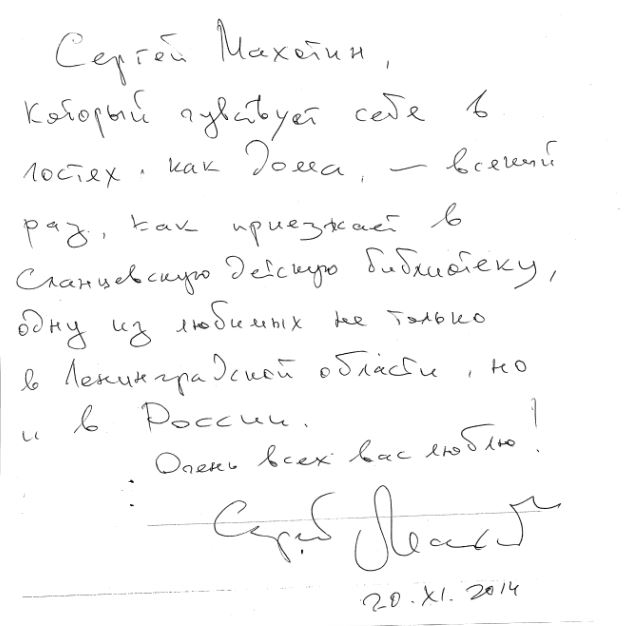 Сергей Махотин,
который чувствует себя в
гостях, как дома, — всякий
раз, как приезжает в
Сланцевскую детскую библиотеку,
одну из любимых не только
в Ленинградской области, но
и в России.
Очень всех вас люблю!
Сергей Махот
20.XI.2014